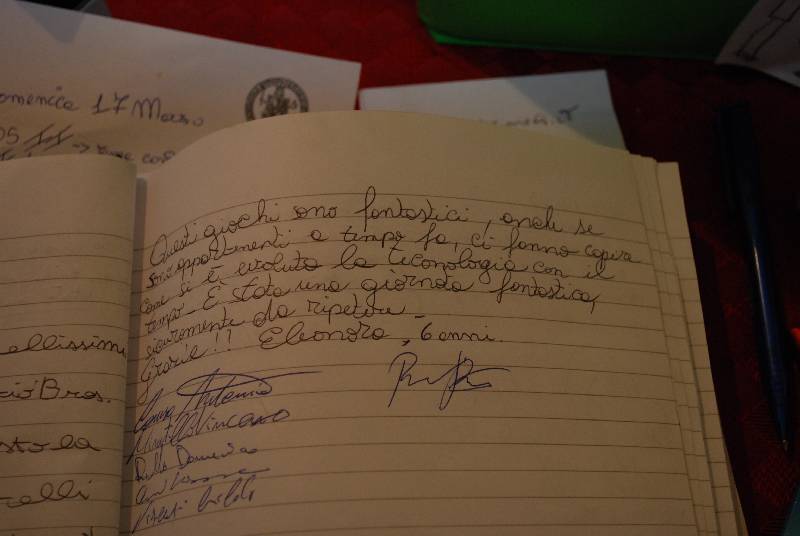 omenica 17 Marzo
05
Questi giochi sono fantastici, anche se
sono appartenenti a tempo fa, ci fanno capire
come si è evoluta la teconologia con il
tempo. È stata una giornata fantastica,
sicuramente da ripetere.
Grazie!! Eleonora, 6 anni.
ellissimi
ió Bros.
sto la
elli
Antonio
Vincenzo
Rullo Domenico